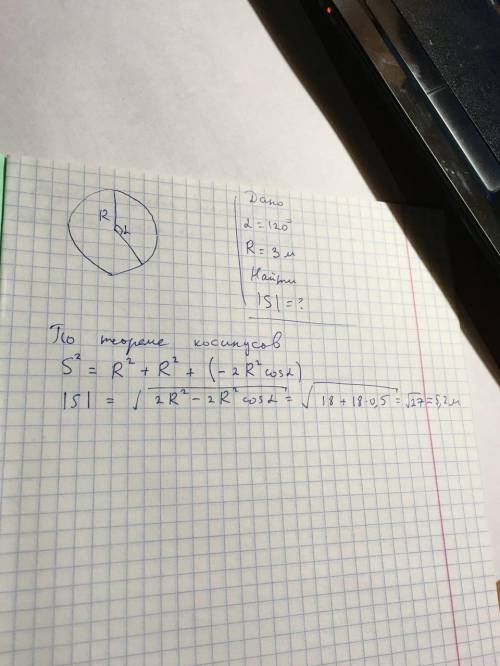 R
α
Дано
α = 120°
R = 3 м
Найти
|S| = ?
По теореме косинусов
S² = R² + R² + (-2R² cosα)
|S| = √2R² - 2R² cosα = √18 + 18·0,5 = √27 = 5,2 м